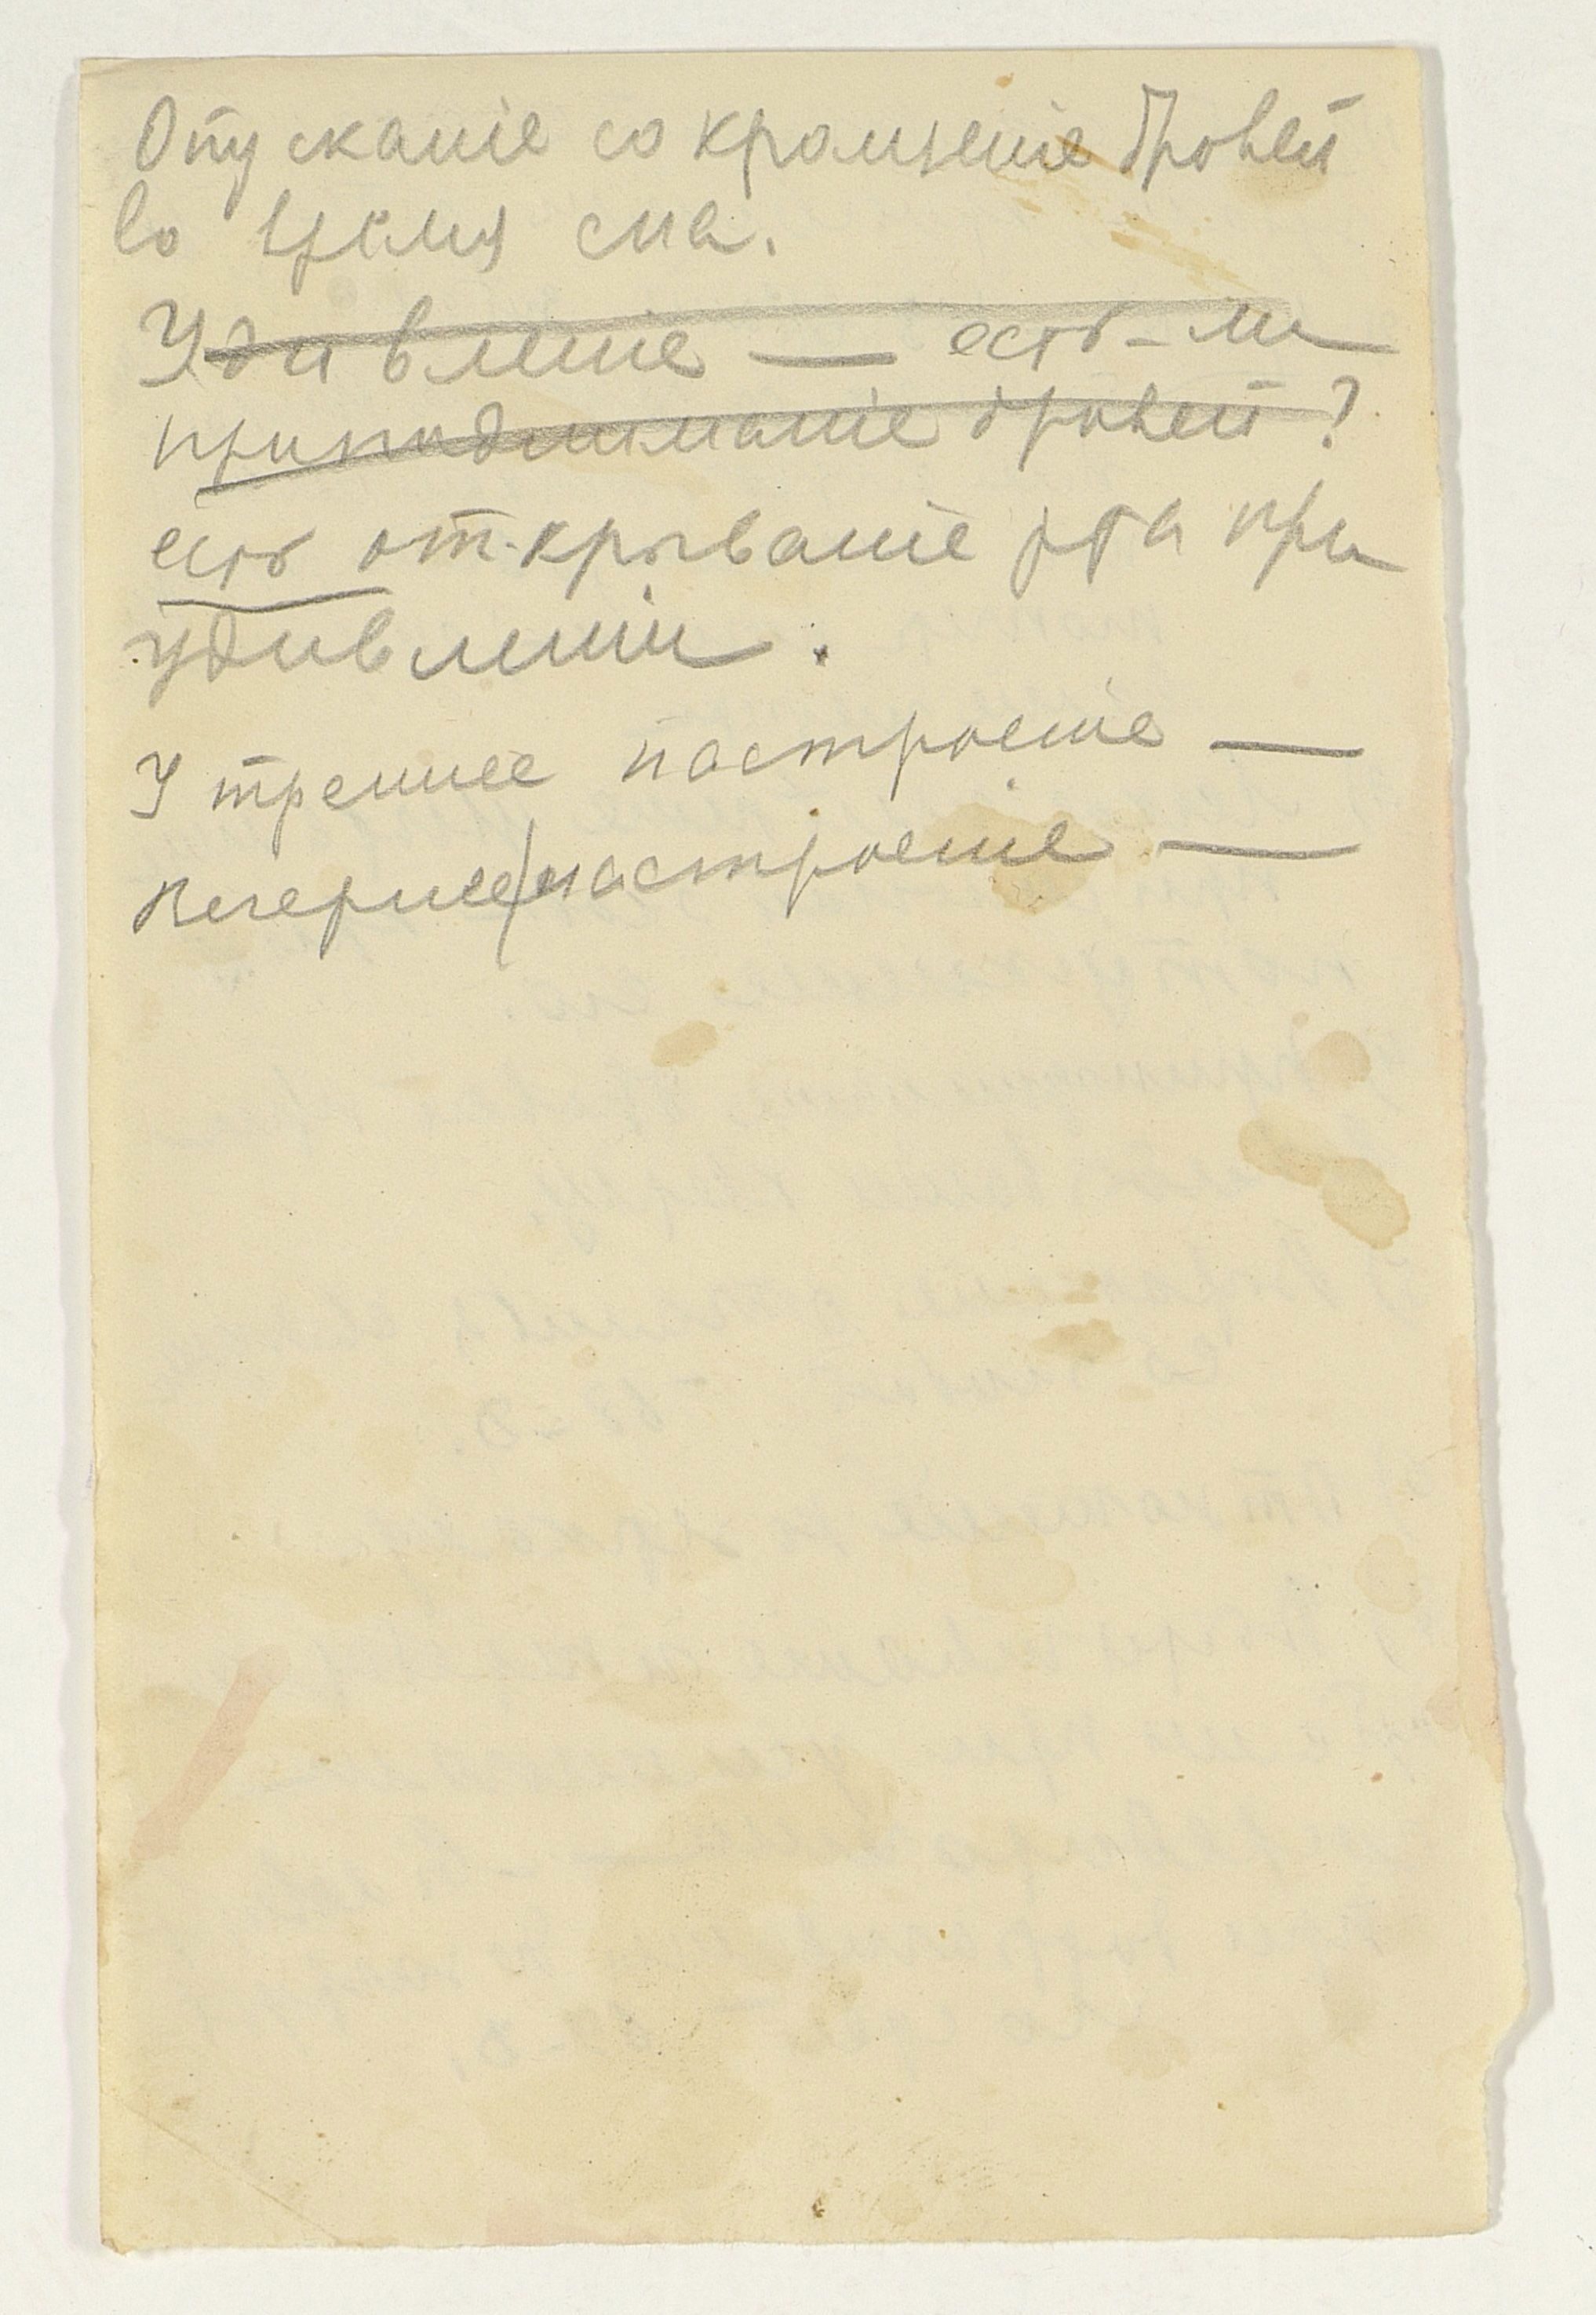 Опусканіе сокращеніе бровей
во время сна.
Удивленіе — есть-ли
приподниманіе бровей?
есть открываніе рта при
удивленіи.
Утреннее настроеніе —
Вечернее настроеніе —